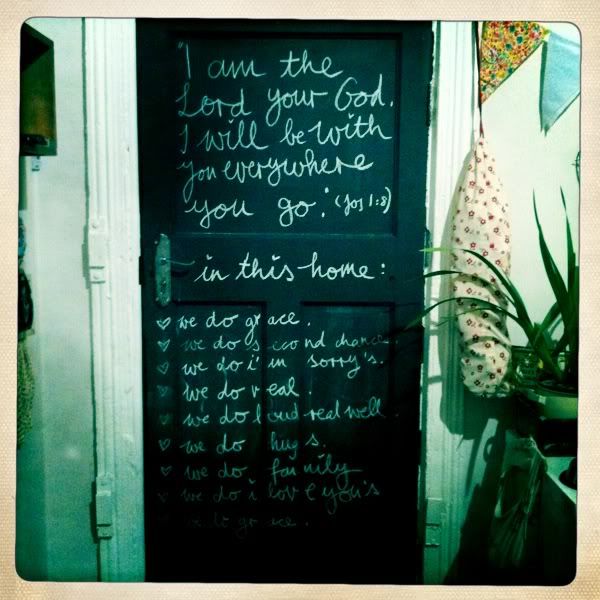 "I am the
Lord your God.
I will be with
you everywhere
you go." (Jos 1:8)
in this home:
♡ we do grace.
♡ we do second chance.
♡ we do i'm sorry's.
♡ we do real.
♡ we do loud real well.
♡ we do hugs.
♡ we do family
♡ we do i love you's
♡ we do grace.